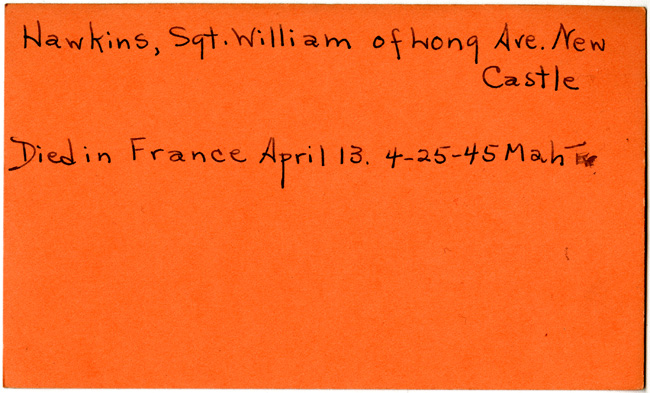 Hawkins, Sgt. William of Long Ave. New
Castle
Died in France April 13. 4-25-45 Mah